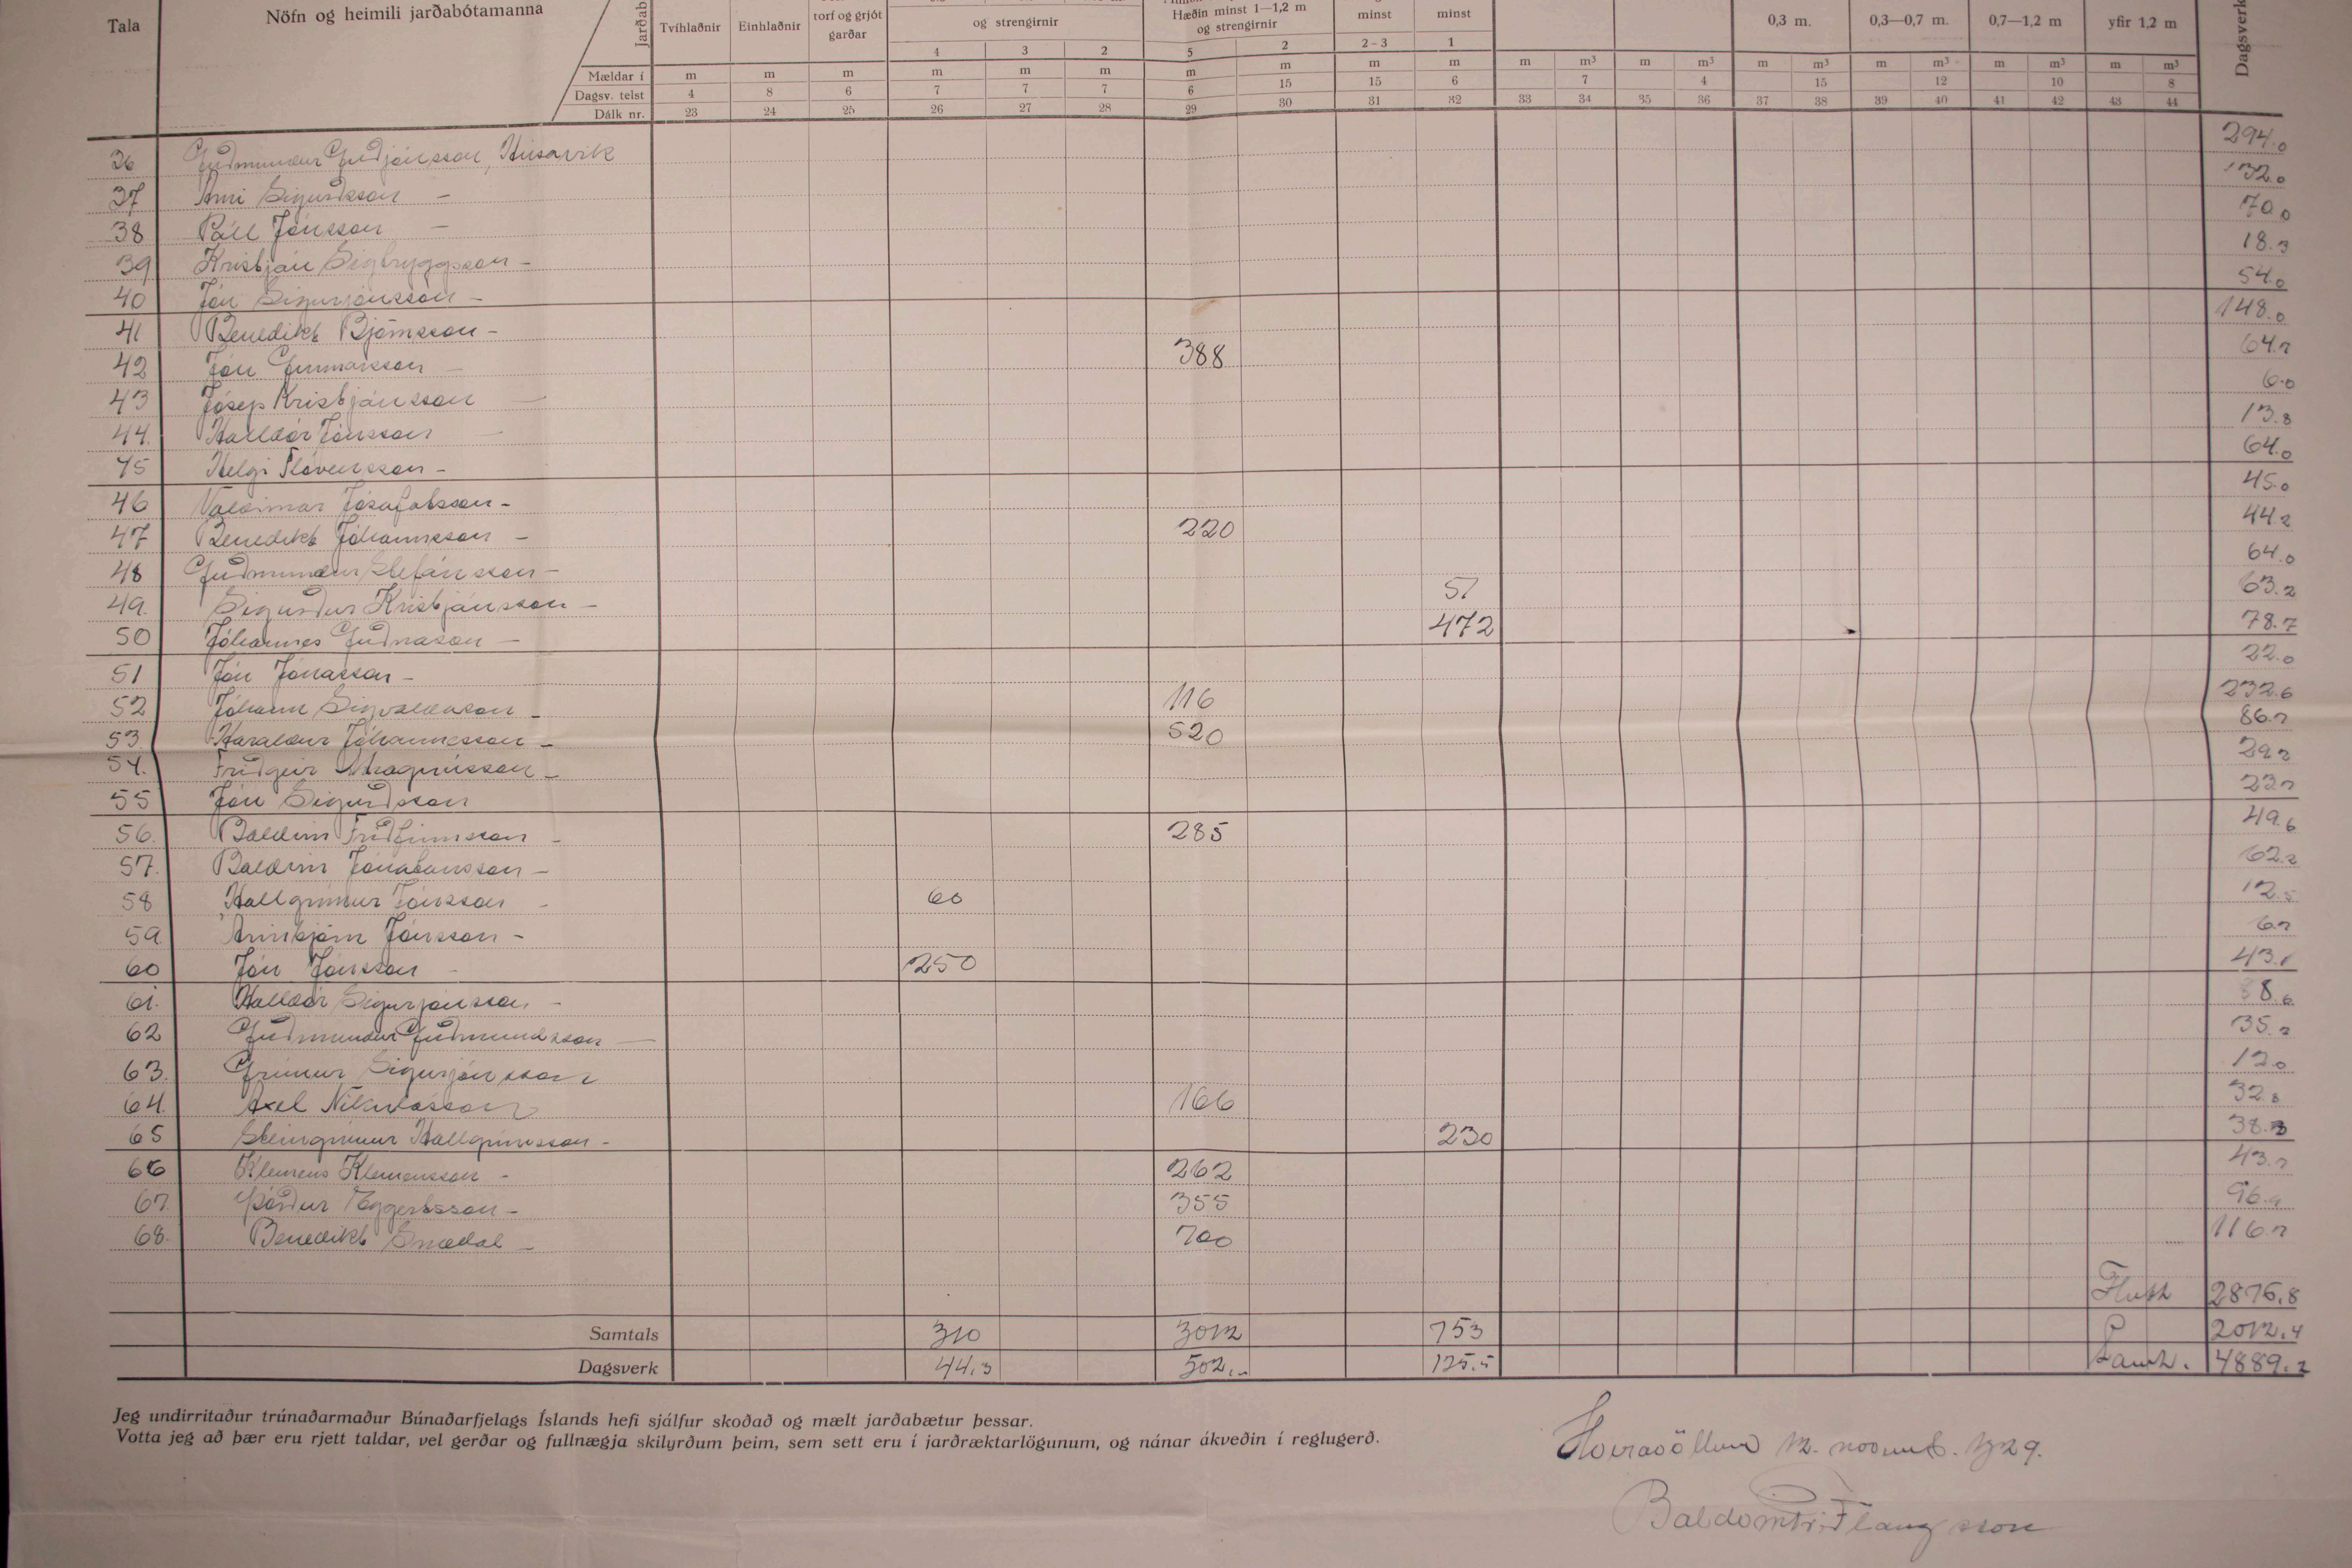 Tala Nöfn og heimili jarðabótamanna Jarðab Tvíhlaðnir Einhlaðnir torf og grjót garðar og strengirnir Hæðin minst 1—1,2 m og strengirnir minst minst 0,3 m. 0,3—0,7 m. 0,7—1,2 m yfir 1,2 m Dagsverk
4 3 2 5 2 2-3 1
Mældar í m m m m m m m m m m m m³ m m³ m m³ m m³ m m³ m m³
Dagsv. telst 4 8 6 7 7 7 6 15 15 6 7 4 15 12 10 8
Dálk nr. 23 24 25 26 27 28 29 30 31 32 33 34 35 36 37 38 39 40 41 42 43 44
36 Guðmundur Guðjónsson, Húsavík 294.0
37 Árni Sigurðsson — 132.0
38 Páll Jónsson — 70.0
39 Kristján Sigtryggsson — 18.3
40 Jón Sigurjónsson — 54.0
41 Benedikt Björnsson — 148.0
42 Jón Gunnarsson — 388 64.7
43 Jósep Kristjánsson — 6.0
44. Halldór Jónsson — 13.8
45 Helgi Flóventsson — 64.0
46 Valdimar Jósafatsson — 45.0
47 Benedikt Jóhannsson — 220 44.2
48 Guðmundur Stefánsson — 64.0
49. Sigurður Kristjánsson — 51 63.2
50 Jóhannes Guðnason — 472 78.7
51 Jón Jónasson — 22.0
52 Jóhann Sigvaldason — 116 232.6
53. Haraldur Jóhannesson — 520 86.7
54. Friðgeir Magnússon —
55 Jón Sigurðsson 23.7
56. Baldvin Friðfinnsson — 285 49.6
57. Baldvin Jónatansson — 62.2
58 Hallgrímur Jónsson — 60 12.5
59. Arnbjörn Jónsson — 6.7
60 Jón Jónsson — 250 43.1
61. Halldór Sigurjónsson —
62 Guðmundur Guðmundsson — 35.2
63. Grímur Sigurjónsson 12.0
64. Axel Nikulásson 166 32.8
65 Steingrímur Hallgrímsson — 230 38.3
66 Klemens Klemensson — 262 43.7
67. Þórður Eggertsson — 355
68. Benedikt Snædal — 700 116.7
Flutt 2876.8
Samtals 310 3012 753 2012.4
Dagsverk 44.3 502.- 125.5 Samt. 4889.2
Jeg undirritaður trúnaðarmaður Búnaðarfjelags Íslands hefi sjálfur skoðað og mælt jarðabætur þessar.
Votta jeg að þær eru rjett taldar, vel gerðar og fullnægja skilyrðum þeim, sem sett eru í jarðræktarlögunum, og nánar ákveðin í reglugerð.
12. novemb. 1929.